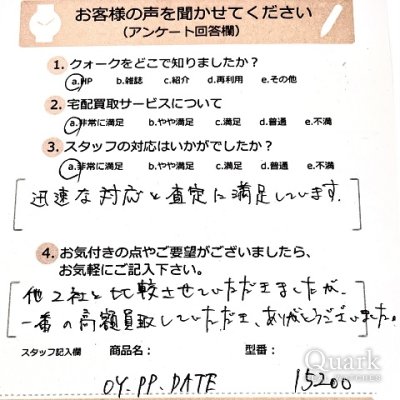 お客様の声を聞かせてください
(アンケート回答欄)
1. クォークをどこで知りましたか?
a.HP b.雑誌 c.紹介 d.再利用 e.その他
2. 宅配買取サービスについて
a.非常に満足 b.やや満足 c.満足 d.普通 e.不満
3. スタッフの対応はいかがでしたか?
a.非常に満足 b.やや満足 c.満足 d.普通 e.不満
迅速な対応と査定に満足しています.
4. お気付きの点やご要望がございましたら、
お気軽にご記入下さい。
他2社と比較させていただきましたが、
一番の高額買取していただき、ありがとうございました。
スタッフ記入欄 商品名: 型番:
OY.PP.DATE 15200
Quark
WATCHES